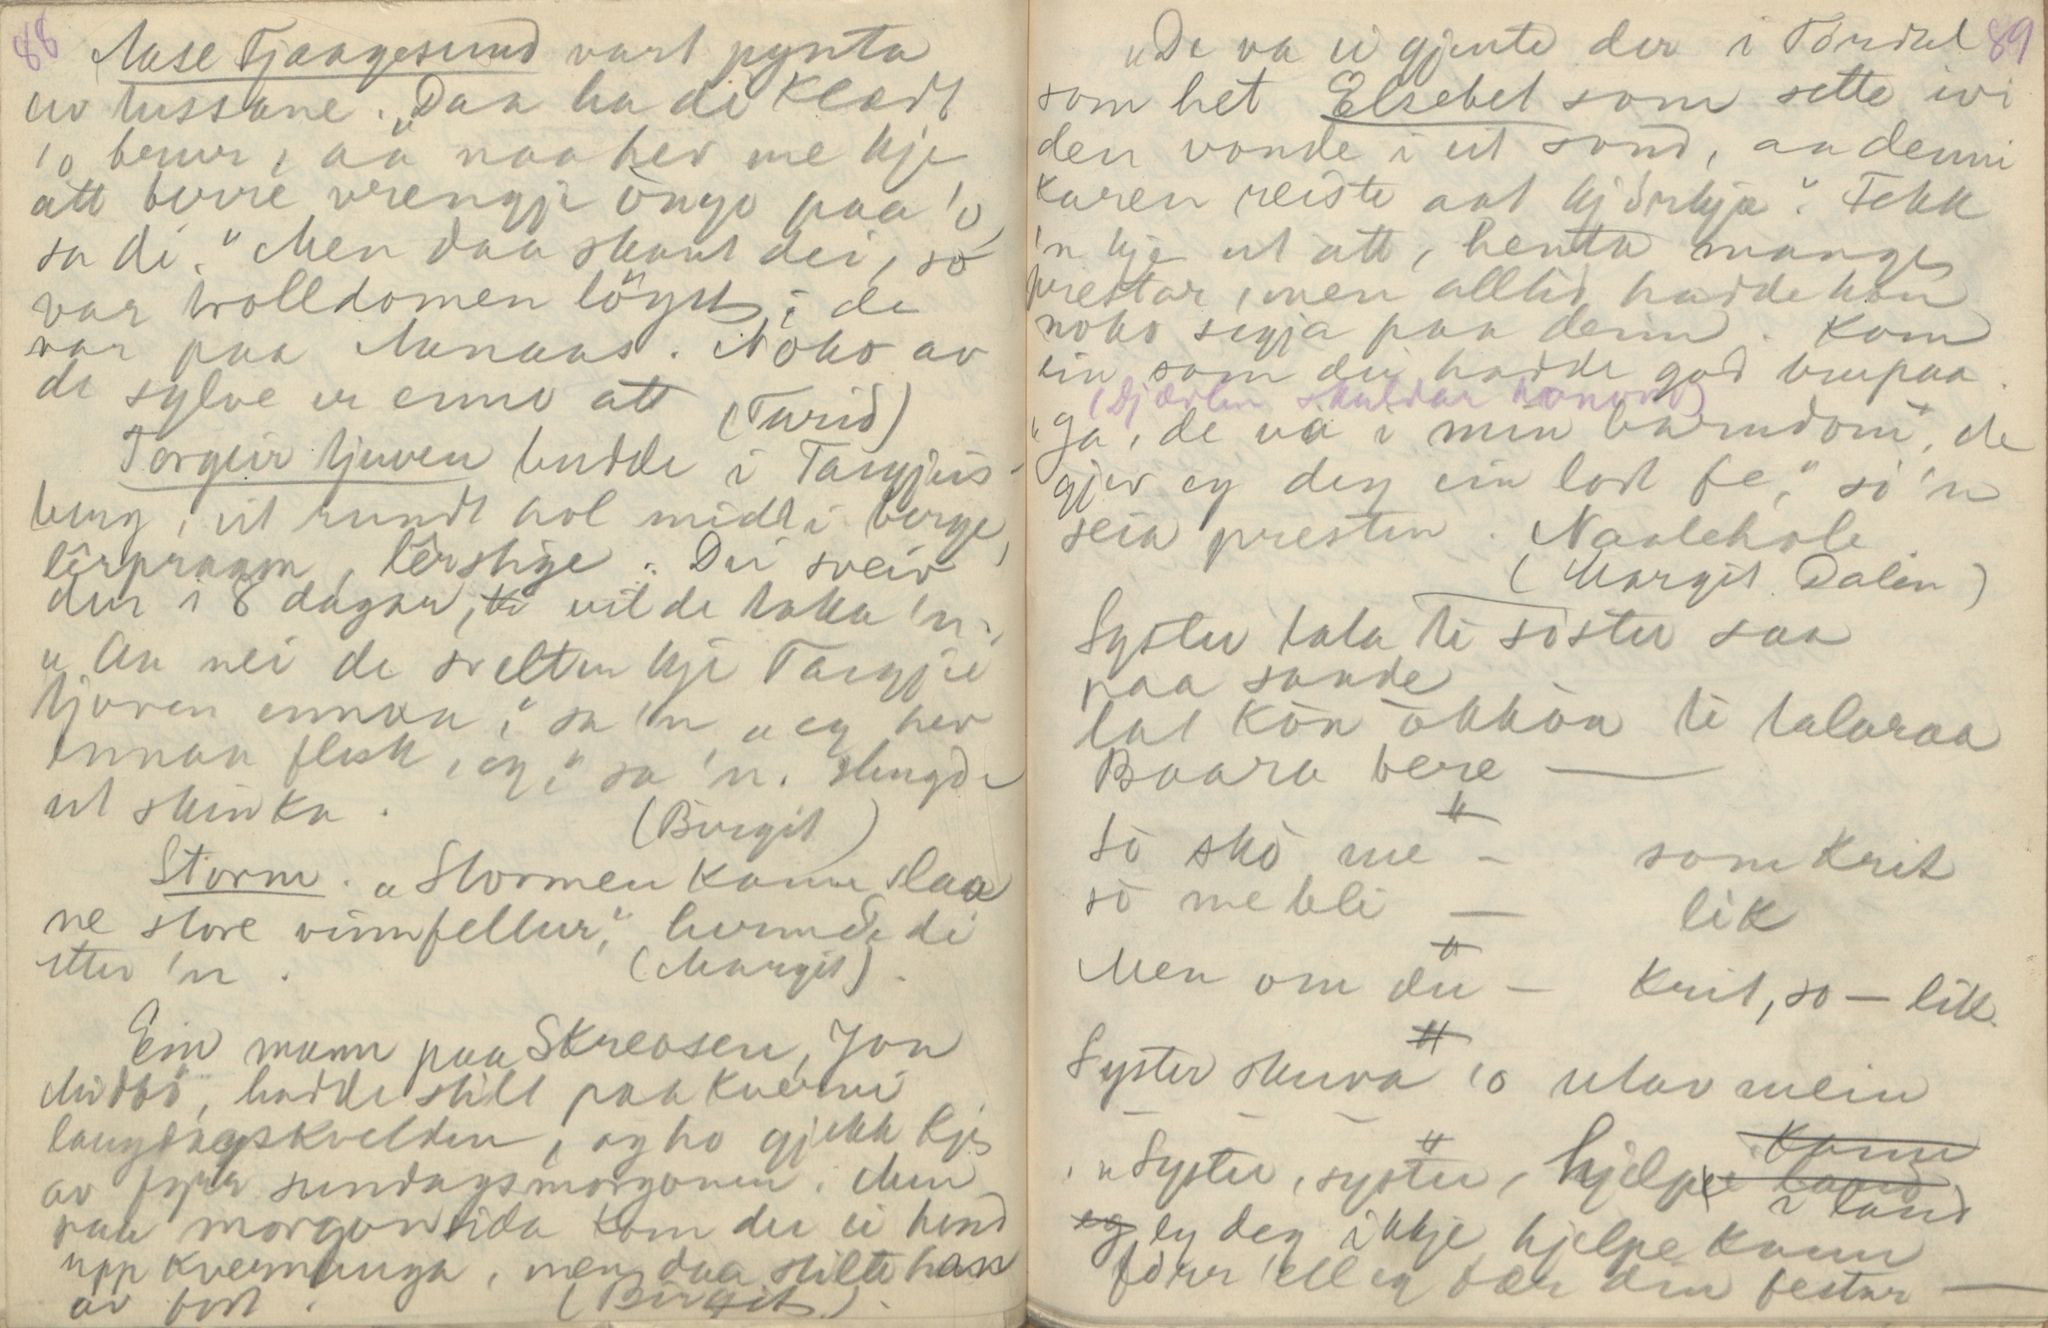 88
Aase Tjaagesund vart pynta
uv tussane. „Daa ha di klædt
'o berur, aa naa hev me kje
att burre vrengje öngo paa 'o,
sa di." Men daa skaut dei, so
var trolldomen löyst, i de
var paa Aanaas. Noko av
de sylve er enno att (Turid)
Torgeir tjuven budde i Targjeis-
berg, eit rundt hol midt i berge,
Dei sveiv
der i 8 dagar, vilde taka 'n.
„Aa nei de svelten kje Targjei
tjoven ennaa," sa 'n „eg hev
ennaa flesk, eg," sa 'n. slengde
ut skinka.
(Birgit)
Storm. „Stormen kann slaa
ne store vinnfellur," hermde di
etter 'n. (Margit).
Ein mann paa Skreosen, Jon
Midbö, hadde stilt paa kverni
laugdagskvelden, og ho gjekk kje
av fyrr sundagsmorgonen. Men
paa morgonsida kom der ei hond
upp kvernauga, men daa stilte han
av fort. (Birgit).
89
„De va ei gjente der i Tördal
som het Elsebet som sette ivi
den vonde i eit sond, aa denni
karen reiste aat kjörkje". Fekk
'n kje ut att, henta mange
prestar, men alltid hadde han
noko segja paa deim. Kom
ein som dei hadde god trupaa.
(Djævlen skuldar honom)
„Ja, de va i min barndom, de
gjev eg deg ein lort fe," so 'n
seia presten. Naalehole.
(Margit Dalen)
Syster tala ti söster saa
paa sande
lat kön ökkön ti talaraa
Baara bere —
"
So sko me — som krit
so me bli — lik
"
Men om du — krit, so — lik.
"
Syster skuva 'o utav mein
"
„Syster, syster, hjelpe i land
Eg deg ikkje hjelpe kann
förr ell eg fær din festar —